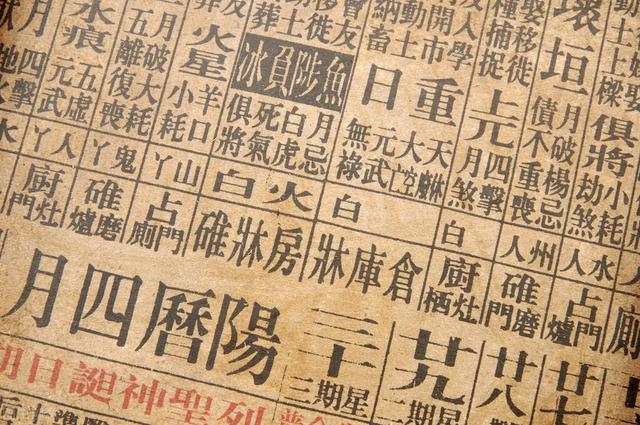 俱將
小耗
劫煞
水人
占門
爐
廿七
壞垣
月破
楊忌
債不
重喪
州人
碓磨
門
廿八
娶移徙
種捕捉
上元
四擊
月煞
白
廚灶
栖
廿九
星期二
人學
開市
動土
納畜
重日
元武
無祿
白
倉庫牀
三十
星期三
友
移徙
土
葬
魚陟負冰
月忌
白虎
死氣
俱將
火白
房牀碓
火星
羊口
小耗
山丫
占門
廁
水痕
月破大耗
五離復喪
五虛
元武
鬼丫
碓磨
爐
月
四擊
人丫
廚灶
門
陽曆四月
列聖神誕日